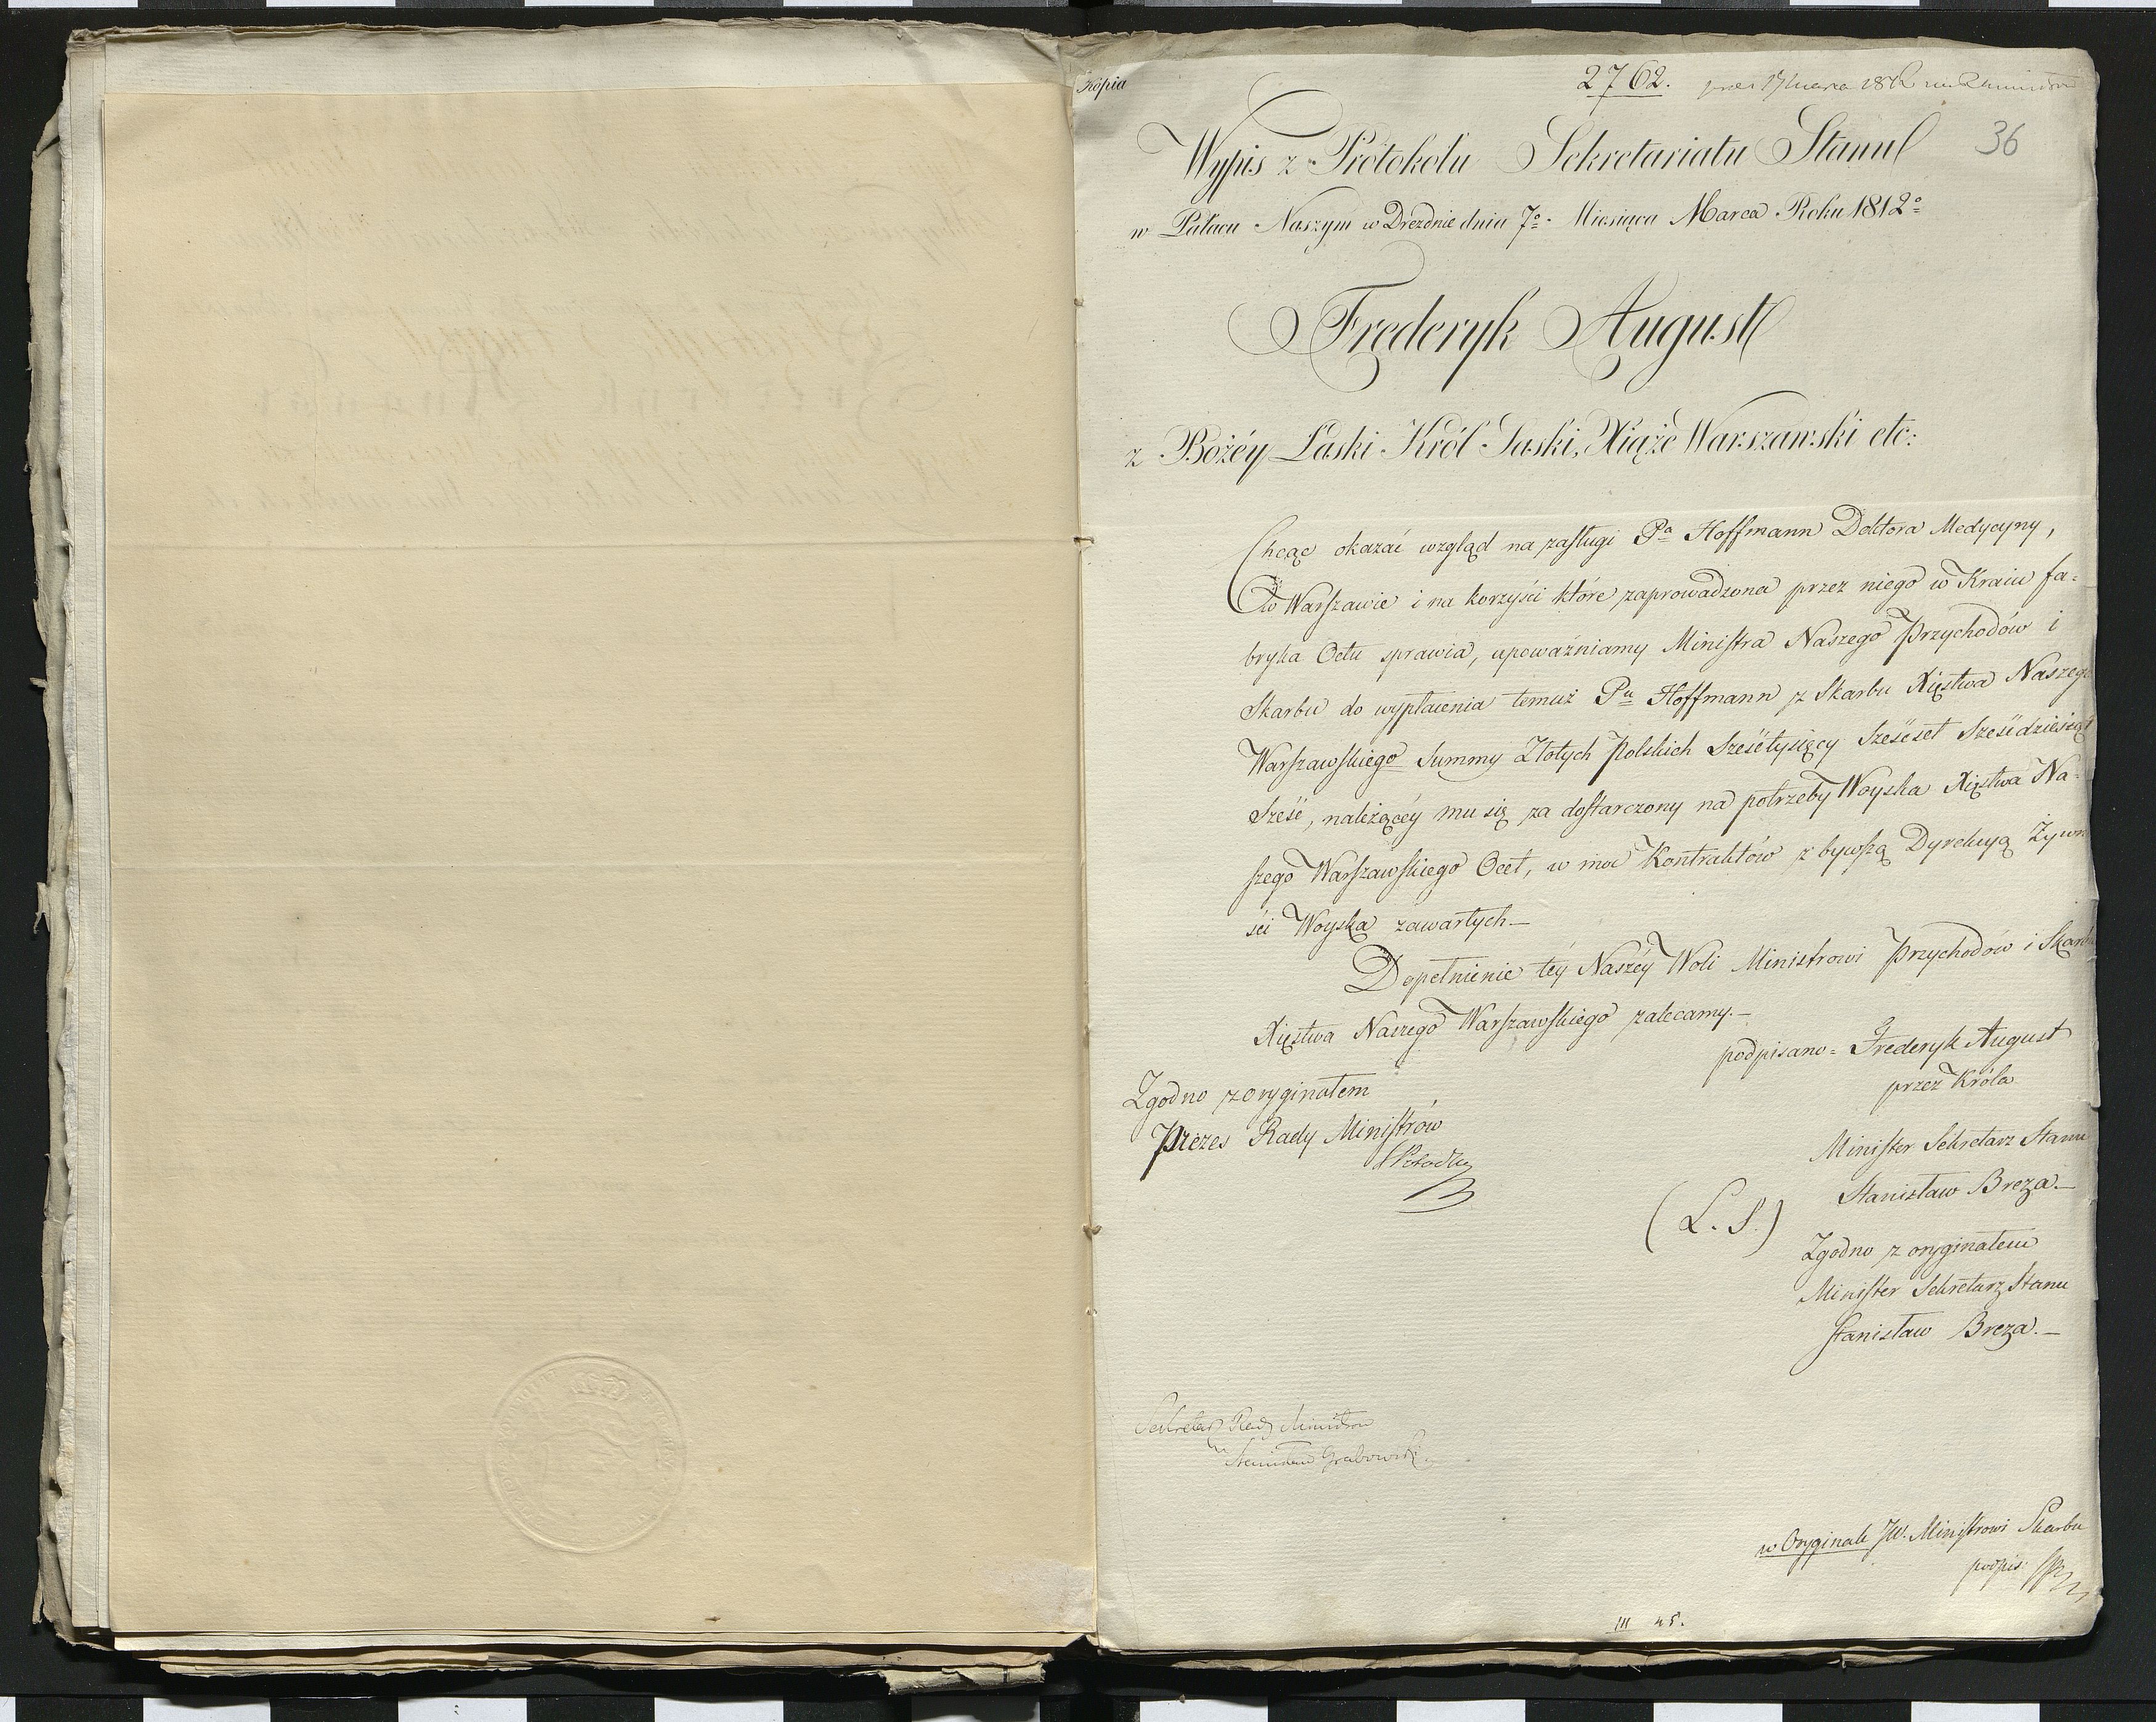 Kopia
2762.
36
Wypis z Protokołu Sekretariatu Stanu
w Pałacu Naszym w Dreznie dnia 7º Miesiąca Marca Roku 1812º
Frederyk August
z Bożéy Łaski Król Saski, Xiąże Warszawski etc:
Chcąc okazać wzgląd na zasługi Pa Hoffmann Doktora Medycyny,
w Warszawie i na korzyści które zaprowadzona przez niego w Kraiu fa=
bryka Octu sprawia, upoważniamy Ministra Naszego Przychodów i
Skarbu do wypłacenia temuż Pu Hoffmann z Skarbu Xięstwa Naszego
Warszawskiego Summy Złotych Polskich Sześćtysięcy Sześćset Sześćdziesiąt
Sześć, należącéy mu się za dostarczony na potrzeby Woyska Xięstwa Na=
szego Warszawskiego Ocet, w moc Kontraktów z bywszą Dyrekcyą Żywn
ści Woyska zawartych—
Dopełnienie téy Naszéy Woli Ministrowi Przychodów i Skarbu
Xięstwa Naszego Warszawskiego zalecamy.—
podpisano= Frederyk August
przez Króla
Minister Sekretarz Stanu
Stanisław Breza.—
(L. S.)
Zgodno z oryginałem
Minister Sekretarz Stanu
Stanisław Breza.—
Zgodno z oryginałem
Prezes Rady Ministrów
Sekretarz Rady Ministrów
Stanisław Grabowski
w Oryginale JW. Ministrowi Skarbu
podpis:
III 45.